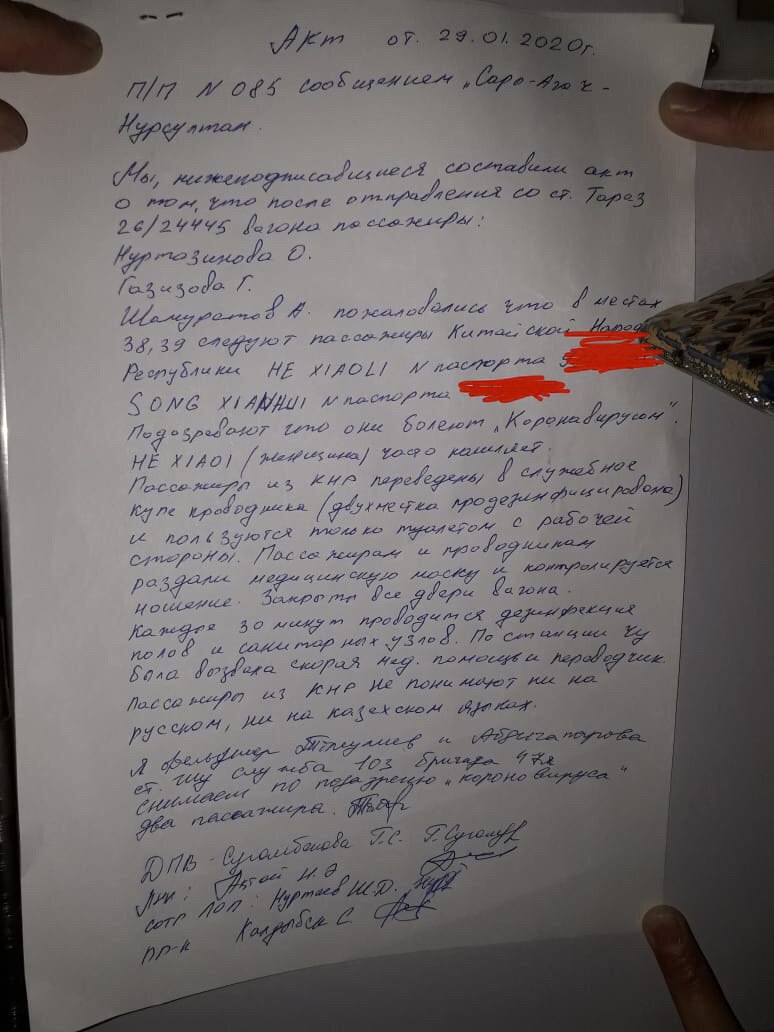 Акт от. 29.01.2020г.
П/П N 085 сообщением „Сары-Агач-
Нурсултан.
Мы, нижеподписавшиеся составили акт
о том, что после отправления со ст. Тараз
26/24445 вагона пассажиры:
Нуртазинова О.
Газизова Г.
Шамуратов А. пожаловались что в местах
38,39 следуют пассажиры Китайской
Республики HE XIAOLI N паспорта
SONG XIANHUI N паспорта
Подозревают что они болеют „Коронавирусом".
HE XIAOI (женщина) часто кашляет.
Пассажиры из КНР переведены в служебное
купе проводника (двухместка продезинфицирована)
и пользуются только туалетом с рабочей
стороны. Пассажирам и проводникам
раздали медицинскую маску и контролируется
ношение. Закрыты все двери вагона.
Каждые 30 минут проводится дезинфекция
полов и санитарных узлов. По станции Чу
была вызвана скорая мед. помощь и переводчик.
Пассажиры из КНР не понимают ни на
русском, ни на казахском языках.
Я фельдшер и
ст. Шу служба 103 бригада
снимаем по подазрению „короновируса"
два пассажира.
ДПВ - Г.С.
Н.Э
сотр ЛОП: Нуртаев Ш.Д.
пр-к С